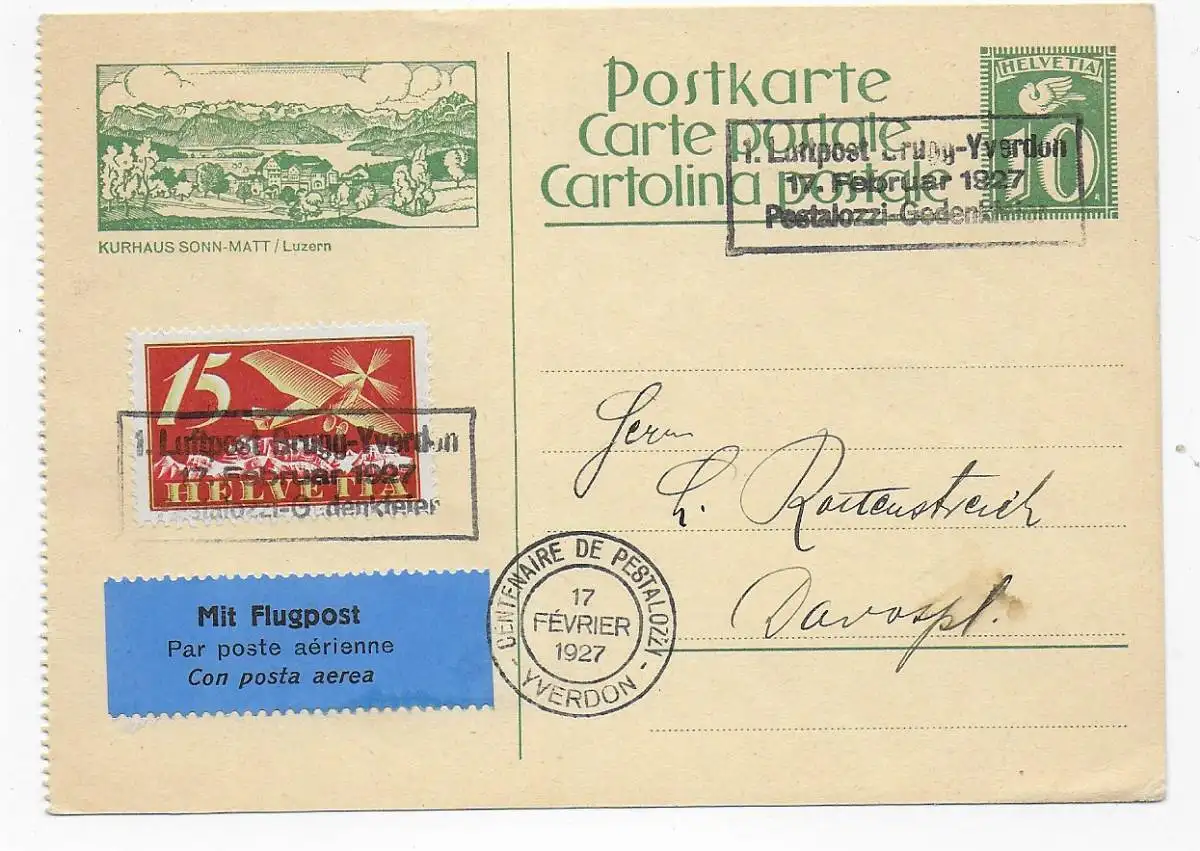 KURHAUS SONN-MATT / Luzern
Postkarte
Carte postale
Cartolina postale
HELVETIA
10
1. Luftpost Brugg-Yverdon
17. Februar 1927
Pestalozzi-Gedenkfeier
15
HELVETIA
1. Luftpost Brugg-Yverdon
17. Februar 1927
stalozzi-G denkfeier
Mit Flugpost
Par poste aérienne
Con posta aerea
CENTENAIRE DE PESTALOZZI
17
FÉVRIER
1927
- YVERDON -
Herrn
L. Rottenstreich
Davospl.